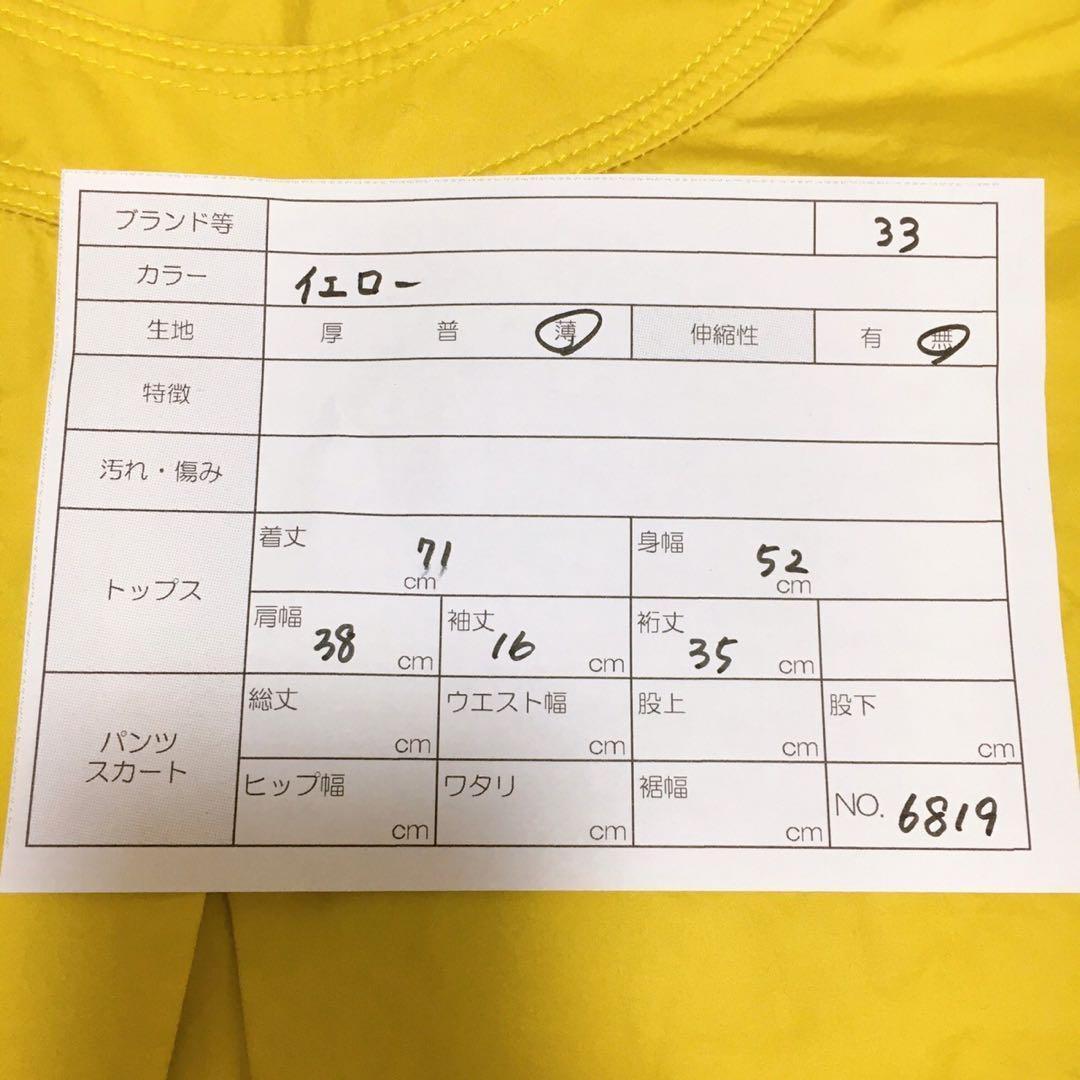 ブランド等 33
カラー イエロー
生地 厚 普 薄 伸縮性 有 無
特徴
汚れ・傷み
トップス
着丈 71 cm 身幅 52 cm
肩幅 38 cm 袖丈 16 cm 裄丈 35 cm
パンツ
スカート
総丈 cm ウエスト幅 cm 股上 cm 股下 cm
ヒップ幅 cm ワタリ cm 裾幅 cm NO. 6819